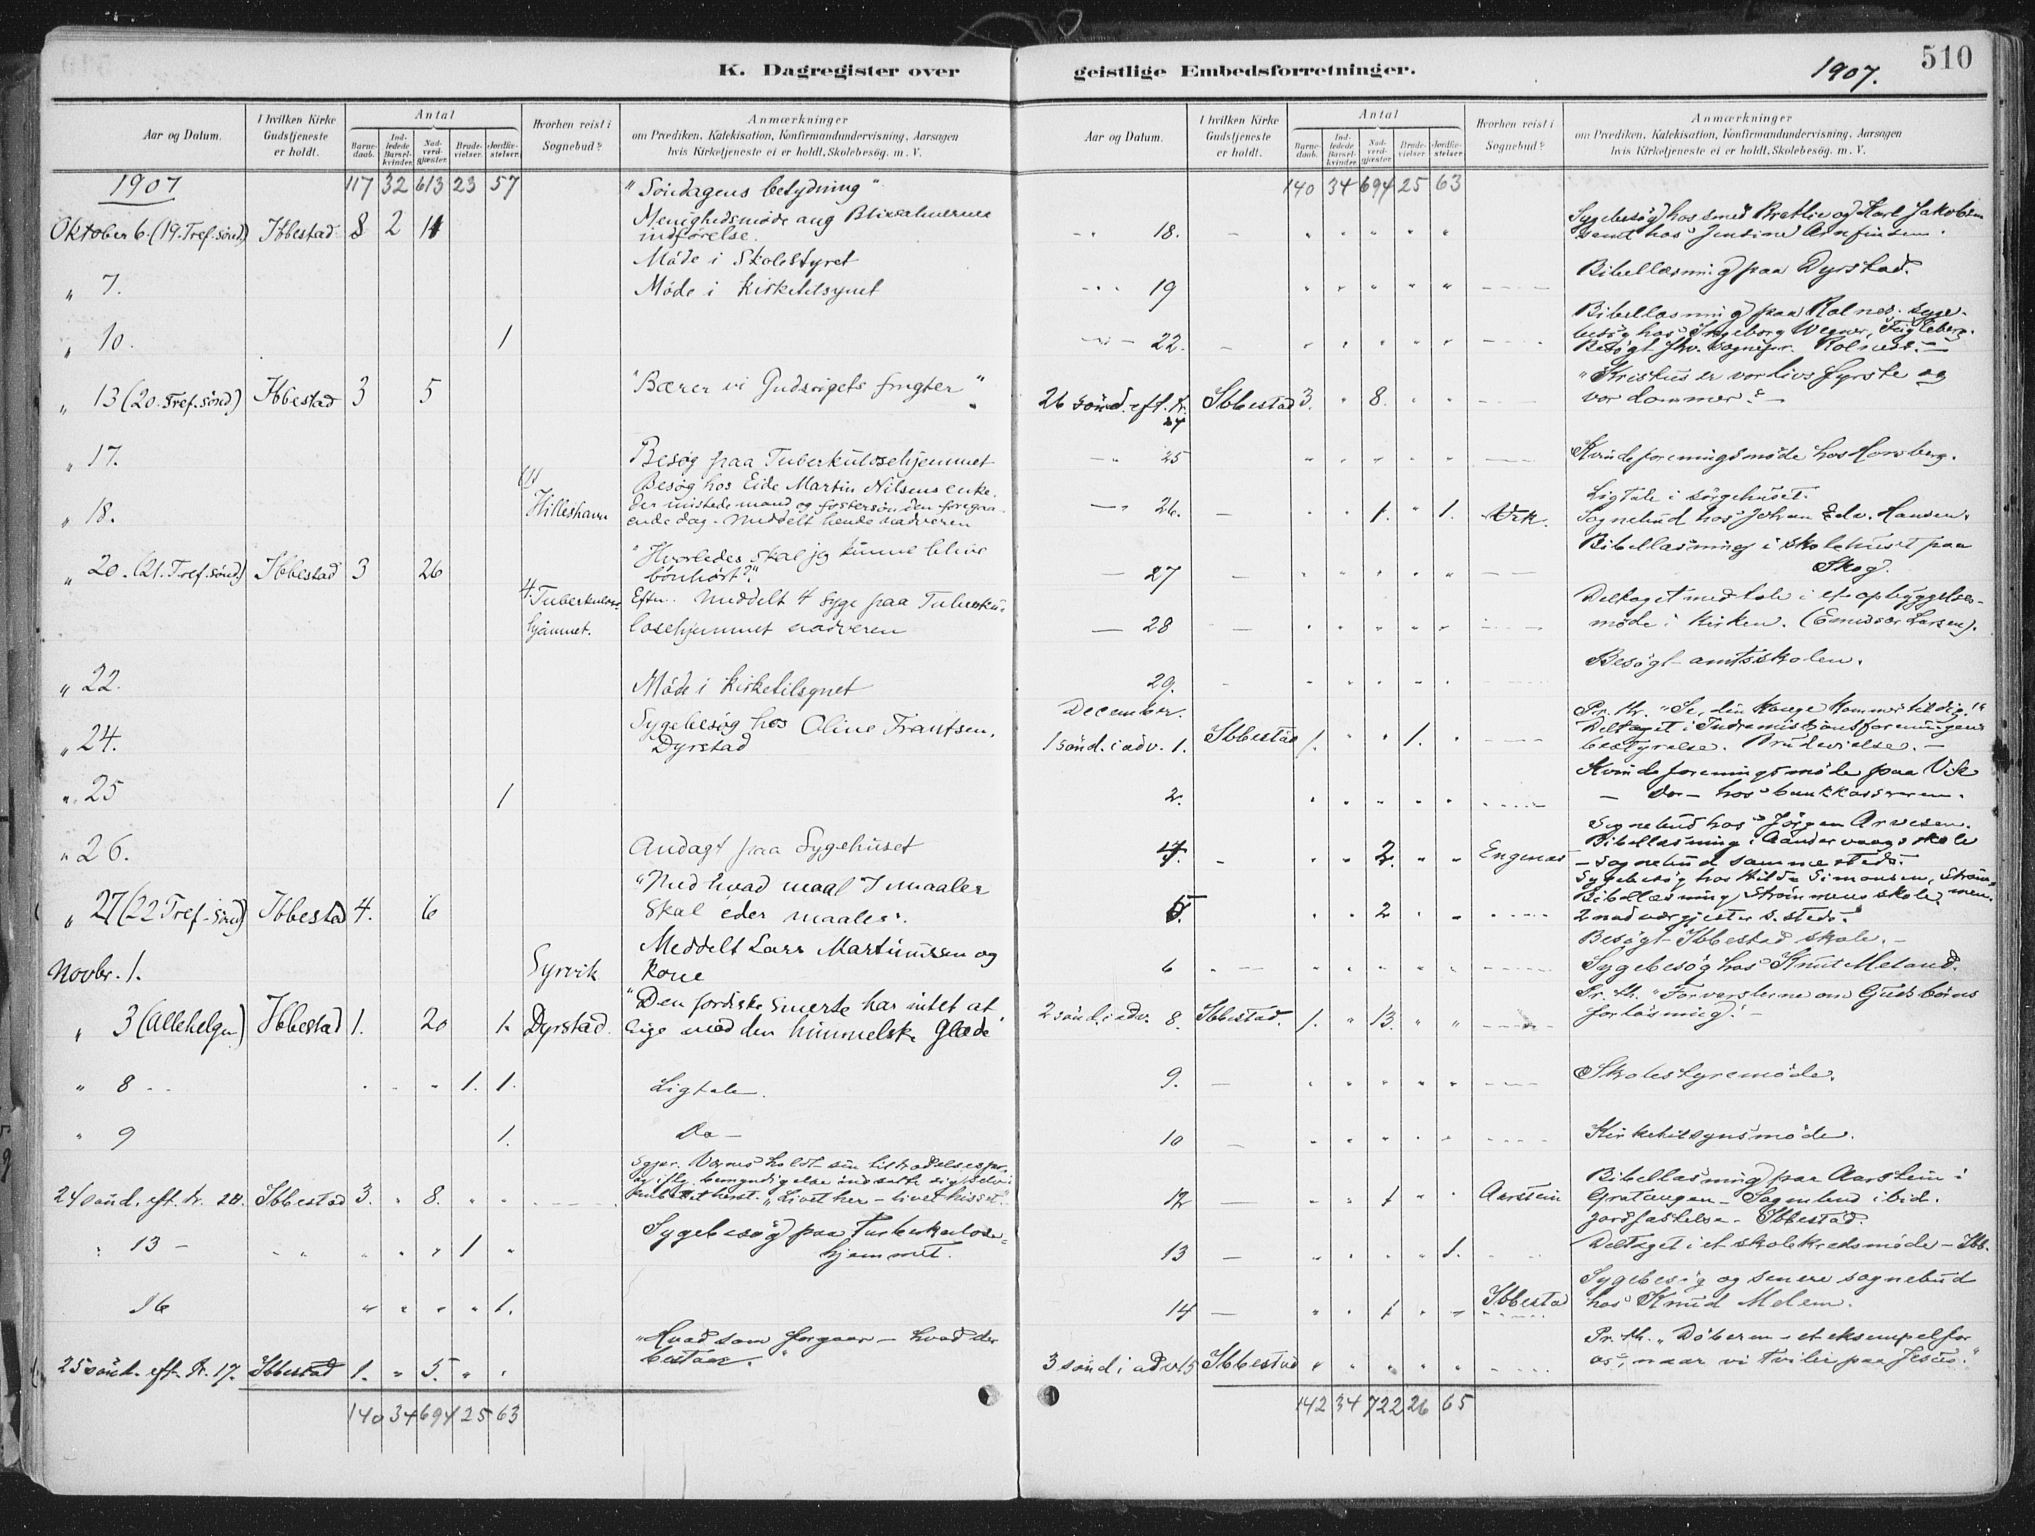 K. Dagregister over
Aar og Datum.
I hvilken Kirke Gudstjeneste er holdt.
Antal
Barne-daab.
Ind-ledede Barsel-kvinder.
Nad-verd-gjæster.
Brude-vielser.
Jordfæ-stelser.
Hvorhen reist i Sognebud?
Anmærkninger
om Prædiken, Katekisation, Konfirmandundervisning, Aarsagen
hvis Kirketjeneste ei er holdt, Skolebesøg. m. V.
1907 117 32 613 23 57 "Søndagens betydning"
Oktober 6. (19. Tref. sønd) Ibbestad 8 2 11 Menighedsmøde ang
indførelse.
Møde i Skolestyret
" 7. Møde i Kirketilsynet
" 10. 1
" 13 (20. Tref. sønd) Ibbestad 3 5 "Bærer vi Gudsrigets frugter"
" 17. Besøg paa Tuberkulosehjemmet
" 18. Hilleshavn Besøg hos Eide Martin Nilsens enke.
der mistede mand og fostersøn den foregaa-
ende dag. Meddelt hende nadveren
" 20. (21. Tref. sønd) Ibbestad 3 26 "Hvorledes skal jeg kunne blive
bønhørt?"
4. Tuberkulose hjemmet. Eftm. Meddelt 4 syge paa Tuberku-
losehjemmet nadveren
" 22. Møde i Kirketilsynet
" 24. Sygebesøg hos Oline Frantsen,
Dyrstad
" 25 1
" 26. Andagt paa Sygehuset
" 27 (22 Tref. sønd) Ibbestad 4. 6 "Med hvad maal I maaler
skal eder maales".
Novbr. 1. Syrvik Meddelt Lars Martinussen og
kone
" 3 (Allehelgen) Ibbestad 1. 20 1. Dyrstad. "Den jordiske smerte har intet at
lige med den himmelske glæde
" 8 1. 1. Ligtale.
" 9 1. Do —
24 sønd. eft. tr. Ibbestad 3. " 8. " " Sgpr. holdt sin tiltrædelsespr.
og iflg. bemyndigelse indsatte sig selv i
embedet. "Livet her – livet hisset".
" 13 – 1 Sygebesøg paa Tuberkulose-
hjemmet.
16 1.
"Hvad som forgaar – hvad der
bestaar."
25 sønd. eft. tr. 17. Ibbestad 1. " 5. " "
140 34 694 25 63
geistlige Embedsforretninger.
1907.
510
Aar og Datum.
I hvilken Kirke Gudstjeneste er holdt.
Antal
Barne-daab.
Ind-ledede Barsel-kvinder.
Nad-verd-gjæster.
Brude-vielser.
Jordfæ-stelser.
Hvorhen reist i Sognebud?
Anmærkninger
om Prædiken, Katekisation, Konfirmandundervisning, Aarsagen
hvis Kirketjeneste ei er holdt, Skolebesøg. m. V.
140 34 694 25 63
18. Sygebesøg hos smed Bratlie og Karl Jakobsen
samt hos Jensine Arnfinsen.
19 Bibellæsning paa Dyrstad.
22. Bibellæsning paa Rolnes. Syge-
besøg hos Ingeborg Wegner, Fugleberg.
Besøgt sognepr. Rolnes. —
26 sønd. eft. tr. 24 Ibbestad 3. " 8. "Kristus er vor livs fyrste og
vor dommer". —
25 Kvindeforeningsmøde hos Hornberg.
26. 1. 1. Vik. Ligtale i sørgehuset.
Sognebud hos Johan Edv. Hansen.
27 Bibellæsning i skolehuset paa
Skog.
28 Deltaget med tale i et opbyggelses-
møde i kirken. (Emissær Larsen).
29. Besøgt amtsskolen.
December.
1 sønd. i adv. 1. Ibbestad 1. " " 1. Pr. th. "Se, din konge kommer til dig!"
Deltaget i Indremissionsforeningens
bestyrelse. Brudevielse. —
2. Kvindeforeningsmøde paa Vik
— Do — hos bankkassereren.
4. 2. Engenes Sognebud hos Jørgen Arvesen.
Bibellæsning i Aandervaag skole
– Sognebud sammesteds.
5. 2 Sygebesøg hos Hilda Simonsen, Strøm-
men.
Bibellæsning, Strømmens skole,
2 nadvergjester s. steds.
6 Besøgt Ibbestad skole. —
Sygebesøg hos Knut Meland.
2 sønd. i adv. 8. Ibbestad. 1. " 13. Pr. th. "Forvarslerne om Guds børns
forløsning". —
9. Skolestyremøde.
10 Kirketilsynsmøde.
12 1 Aarstein Bibellæsning paa Aarstein i
Gratangen – Sognebud ibid.
13 1. Jordfæstelse – Ibbestad.
Deltaget i et skolekredsmøde – Ibb.
14 1 Ibbestad Sygebesøg og senere sognebud
hos Knud Melem.
3 sønd i adv. 15 Ibbestad Pr. th. "Døberen – et eksempel for
os, naar vi tviler paa Jesus."
142 34 722 26 65